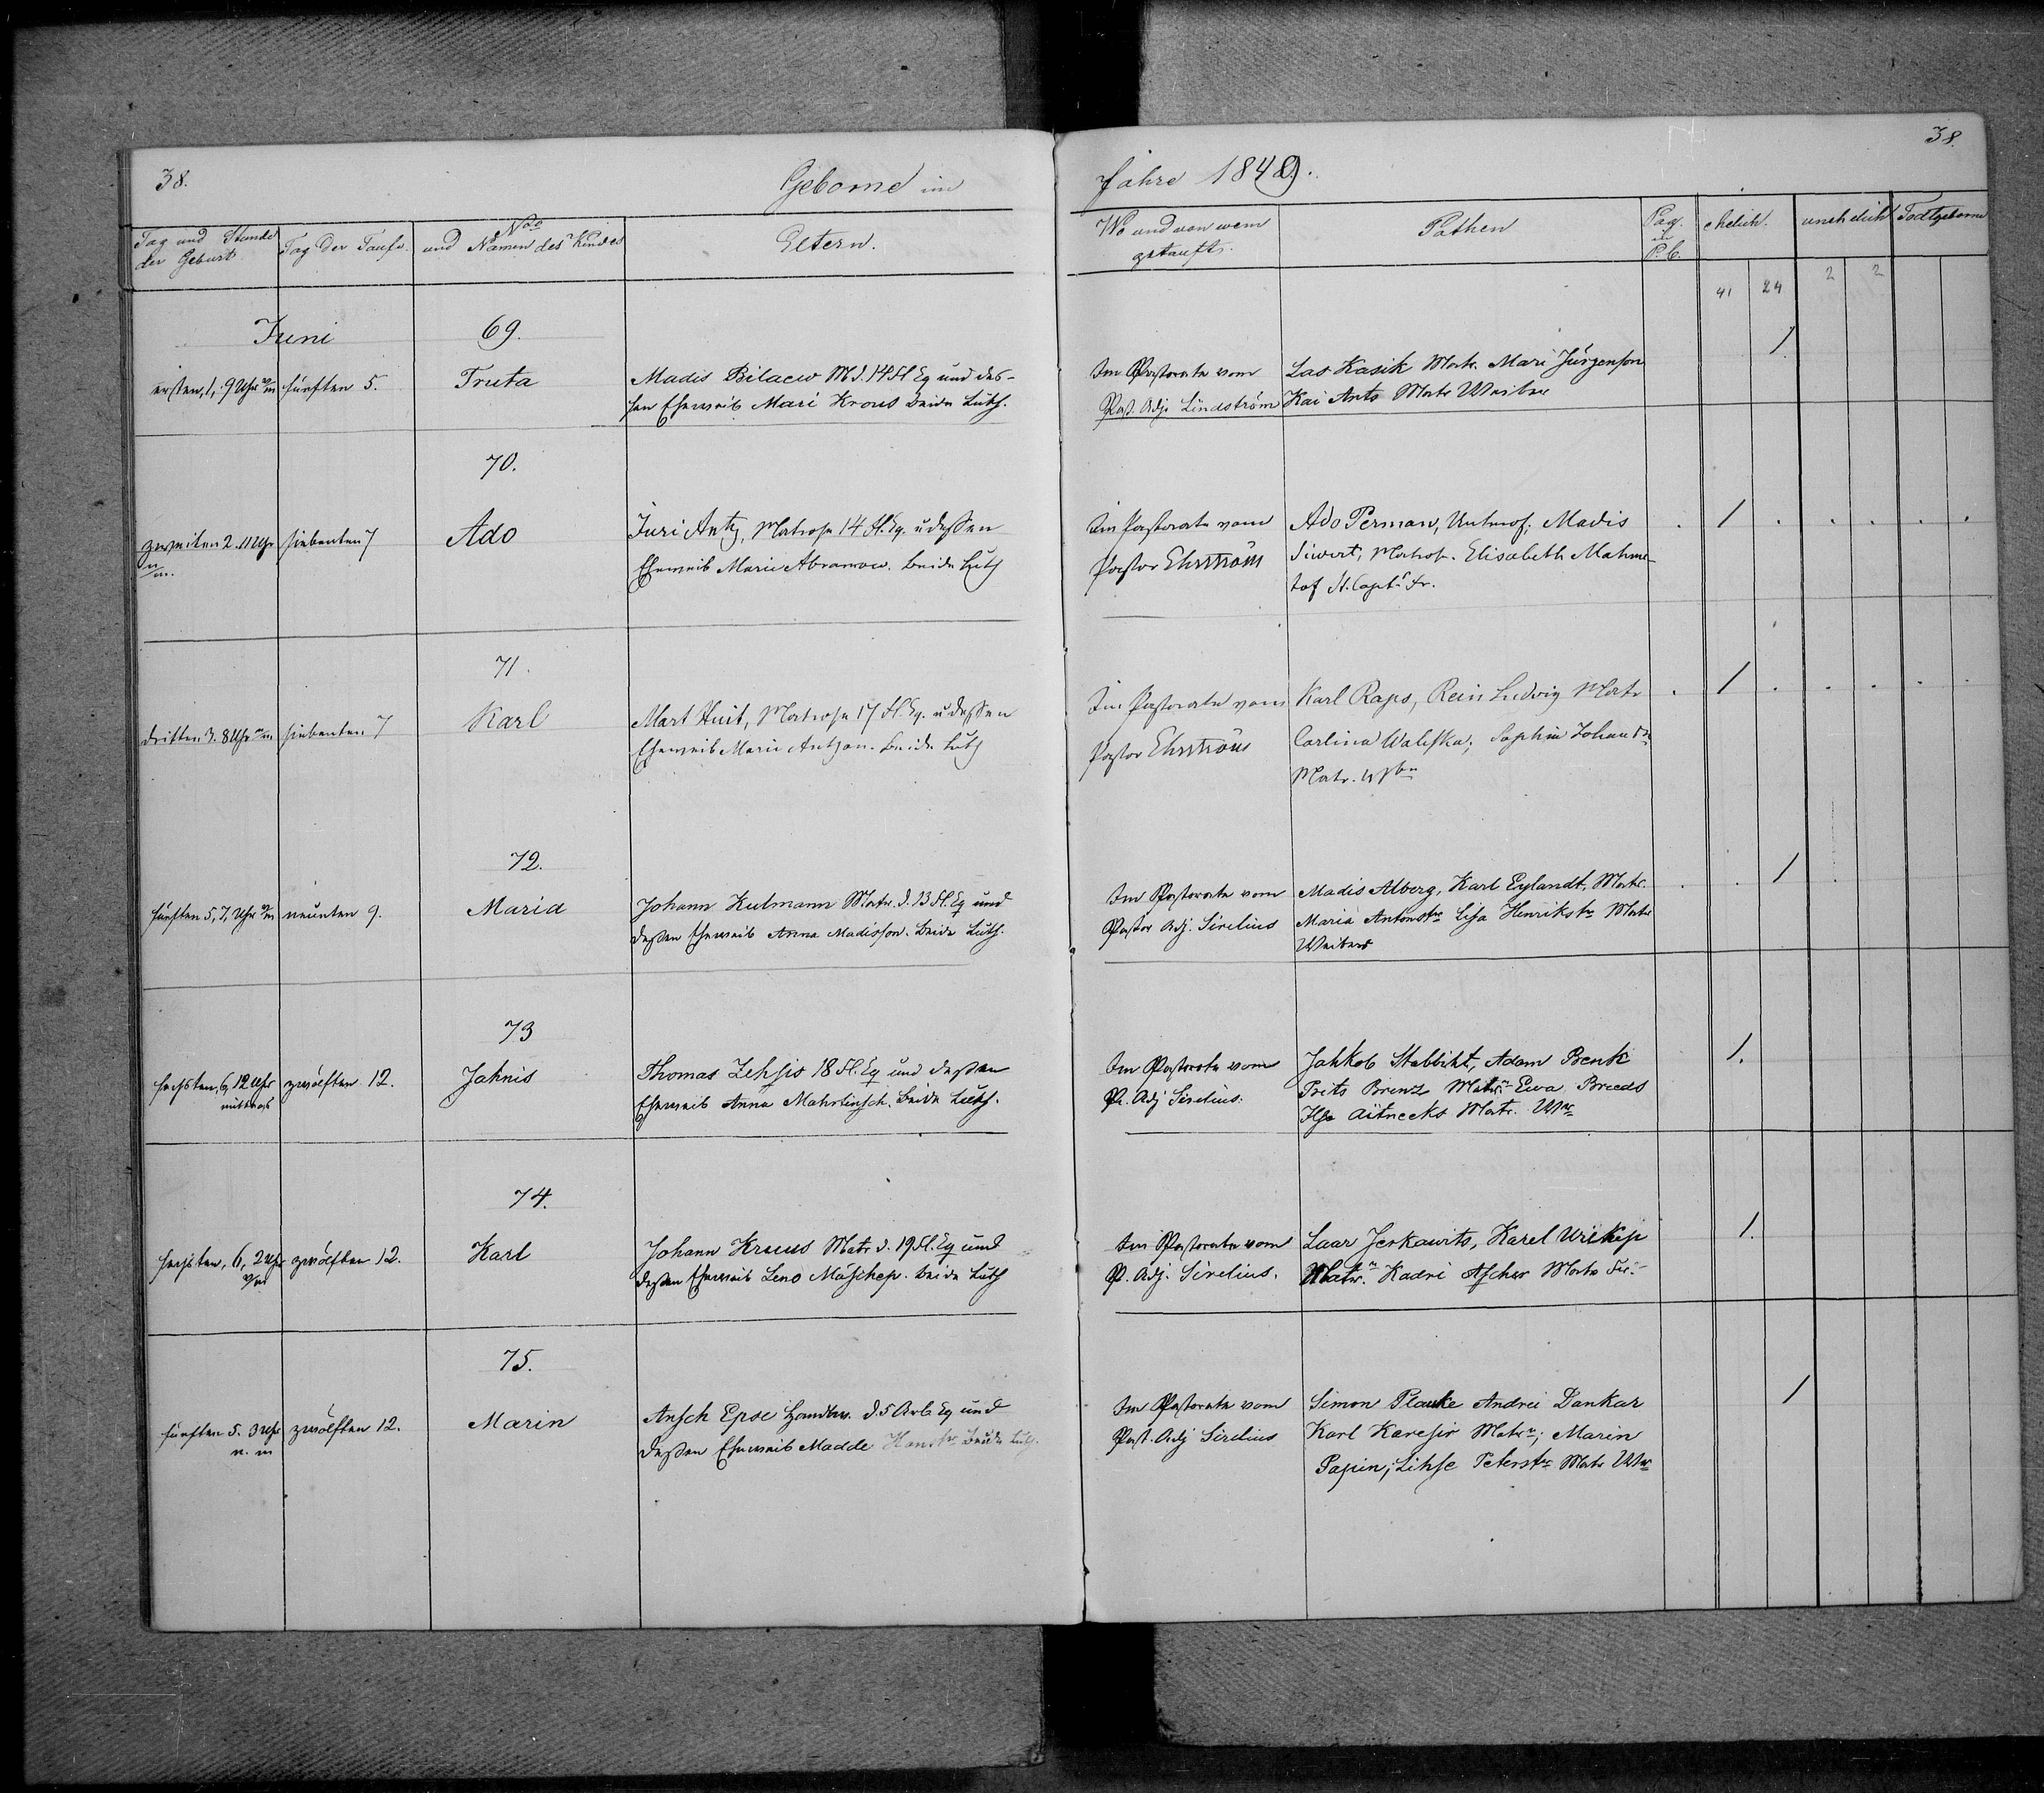 38.
Geborne im
Jahre 1849.
38.
Tag und Stunde der Geburt
Tag der Taufe.
No und Namen des Kindes
Eltern.
Wo und von wem getauft.
Pathen
Pag. in P.b.
ehelich.
unehelich
Todtgeborne
41 24 2 2
Juni
69.
ersten, 1, 9 Uhr v/m
fünften 5.
Truta
Madis Bilaew M d. 14 Fl Eq und des-
sen Eheweib Mari Krous beide Luth.
Im Pastorate vom
Past. Adj. Lindström
Las Kasik Matr. Mari Jürgenson
Kai Ants Matr Weiber
1
70.
zweiten 2. 11 Uhr
n/m.
siebenten 7
Ado
Juri Antz, Matrose 14 Fl. Eq. u dessen
Eheweib Marie Abramow. beide Luth
Im Pastorate vom
Pastor Ehrström
Ado Perman, Unterof. Madis
Siwert, Matros. Elisabeth Mahme-
tof St. Capt. Fr.
1
71.
dritten 3. 8 Uhr n/m
siebenten 7
Karl
Mart Huit, Matrose 17 Fl. Eq. u dessen
Eheweib Marie Antzon. beide Luth
Im Pastorate vom
Pastor Ehrström
Karl Raps, Rein Ludvig Matr
Carlina Walefka, Sophia Johandr
Matr. Wber
1
72.
fünften 5, 7, Uhr n/m
neunten 9.
Maria
Johann Kulmann Matr. d. 13 Fl. Eq und
dessen Eheweib Anna Madisson. beide Luth.
Im Pastorate vom
Pastor Adj. Sirelius
Madis Alberg, Karl Eylandt, Matr.
Maria Antonstr Lisa Henrikstr Matr
Weiber
1
73
sechsten, 6, 12 Uhr
mittags
zwölften 12.
Jahnis
Thomas Zehsis 18 Fl. Eq und dessen
Eheweib Anna Mahrtinsch. beide Luth.
Im Pastorate vom
P. Adj Sirelius.
Jahkob Stabbikt, Adam Benk
Prits Brenz Matr. Ewa Breeds
Ilse Aitneeks Matr. Wbr
1.
74.
sechsten, 6, 2 Uhr
v/m
zwölften 12.
Karl
Johann Kruus Matr d. 19 Fl. Eq und
dessen Eheweib Leno Mäschep. beide Luth
Im Pastorate vom
P. Adj. Sirelius.
Laar Jerkawits, Karel Wilkep
Matr. Kadri Ascher Matr Fr.
1.
75.
fünften 5. 3 Uhr
n. m
zwölften 12.
Marin
Ansch Epse Handw. d. 5 Arb. Eq und
dessen Eheweib Madde Hanstr beide Luth.
Im Pastorate vom
Past. Adj Sirelius
Simon Plauke Andrei Dankar
Karl Karesir Matr; Marin
Papin; Lihse Peterstr Matr Wbr
1